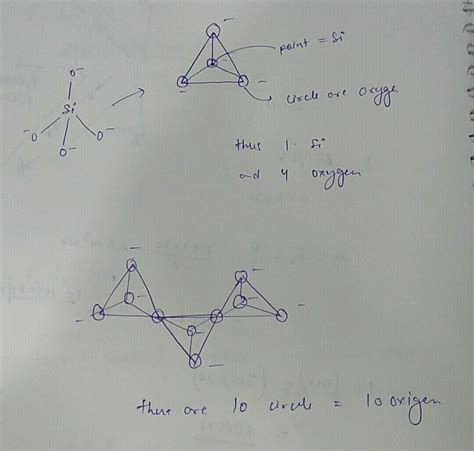 O⁻
Si
O⁻ O⁻ O⁻
point = Si
circle are oxyge
thus 1 Si
and 4 oxygen
there are 10 circle = 10 oxigen